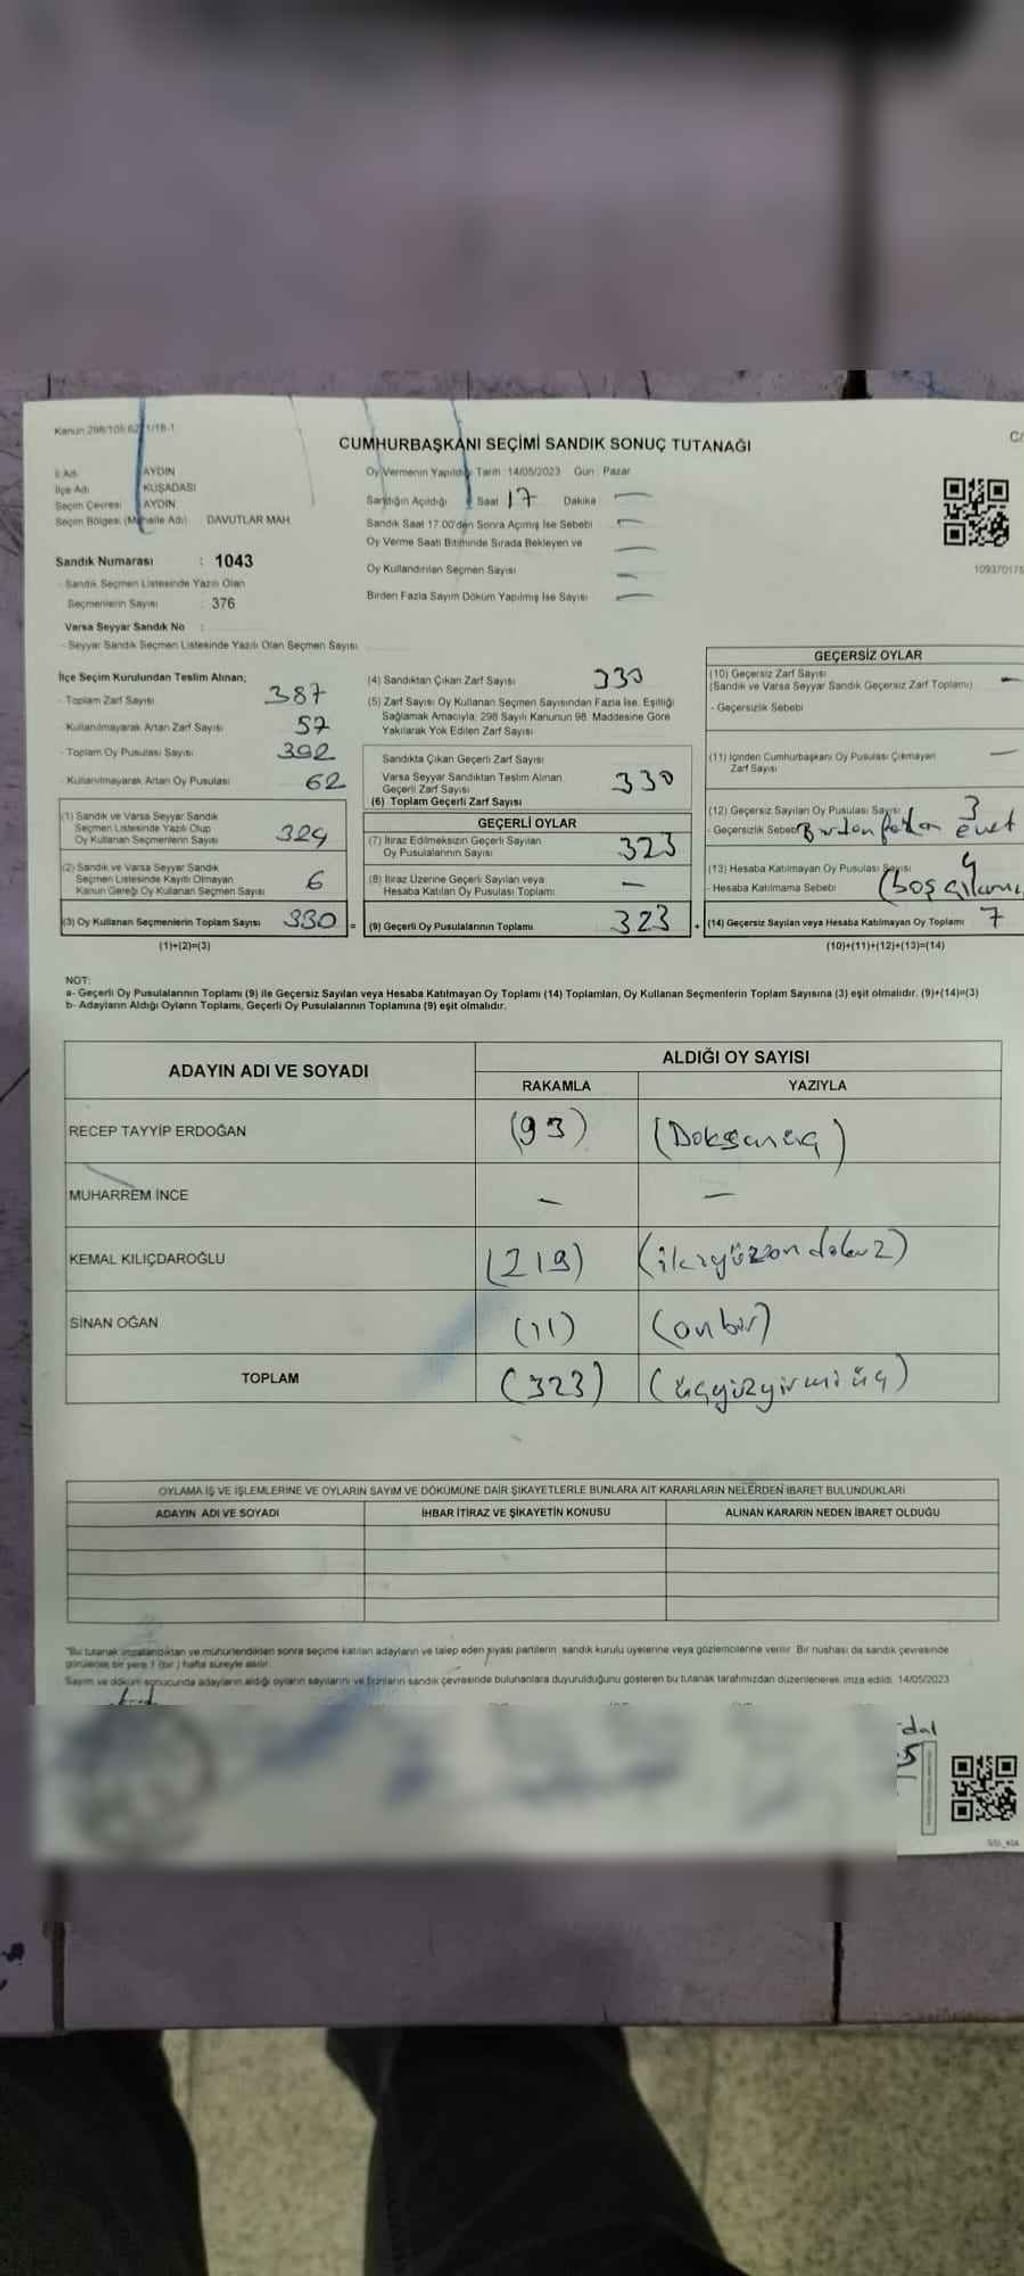 Kanun 298/105
CUMHURBAŞKANI SEÇİMİ SANDIK SONUÇ TUTANAĞI
C/
İl Adı AYDIN
İlçe Adı KUŞADASI
Seçim Çevresi AYDIN
Seçim Bölgesi (Mahalle Adı) DAVUTLAR MAH.
Oy Vermenin Yapıldığı Tarih 14/05/2023 Gün : Pazar
Sandığın Açıldığı Saat 17 Dakika —
Sandık Saat 17.00'den Sonra Açılmış İse Sebebi —
Oy Verme Saati Bitiminde Sırada Bekleyen ve —
Oy Kullandırılan Seçmen Sayısı —
Birden Fazla Sayım Döküm Yapılmış İse Sayısı —
Sandık Numarası : 1043
- Sandık Seçmen Listesinde Yazılı Olan
Seçmenlerin Sayısı : 376
Varsa Seyyar Sandık No :
- Seyyar Sandık Seçmen Listesinde Yazılı Olan Seçmen Sayısı
İlçe Seçim Kurulundan Teslim Alınan;
- Toplam Zarf Sayısı 387
- Kullanılmayarak Artan Zarf Sayısı 57
- Toplam Oy Pusulası Sayısı 392
- Kullanılmayarak Artan Oy Pusulası 62
(1) Sandık ve Varsa Seyyar Sandık
Seçmen Listesinde Yazılı Olup
Oy Kullanan Seçmenlerin Sayısı 324
(2) Sandık ve Varsa Seyyar Sandık
Seçmen Listesinde Kayıtlı Olmayan
Kanun Gereği Oy Kullanan Seçmen Sayısı 6
(3) Oy Kullanan Seçmenlerin Toplam Sayısı 330 =
(1)+(2)=(3)
(4) Sandıktan Çıkan Zarf Sayısı 330
(5) Zarf Sayısı Oy Kullanan Seçmen Sayısından Fazla İse, Eşitliği
Sağlamak Amacıyla, 298 Sayılı Kanunun 98. Maddesine Göre
Yakılarak Yok Edilen Zarf Sayısı
Sandıkta Çıkan Geçerli Zarf Sayısı
Varsa Seyyar Sandıktan Teslim Alınan
Geçerli Zarf Sayısı
(6) Toplam Geçerli Zarf Sayısı 330
GEÇERLİ OYLAR
(7) İtiraz Edilmeksizin Geçerli Sayılan
Oy Pusulalarının Sayısı 323
(8) İtiraz Üzerine Geçerli Sayılan veya
Hesaba Katılan Oy Pusulası Toplamı —
(9) Geçerli Oy Pusulalarının Toplamı 323 +
GEÇERSİZ OYLAR
(10) Geçersiz Zarf Sayısı
(Sandık ve Varsa Seyyar Sandık Geçersiz Zarf Toplamı) —
- Geçersizlik Sebebi
(11) İçinden Cumhurbaşkanı Oy Pusulası Çıkmayan
Zarf Sayısı —
(12) Geçersiz Sayılan Oy Pusulası Sayısı 3
- Geçersizlik Sebebi Birden fazla evet
(13) Hesaba Katılmayan Oy Pusulası Sayısı 4
- Hesaba Katılmama Sebebi (Boş
(14) Geçersiz Sayılan veya Hesaba Katılmayan Oy Toplamı 7
(10)+(11)+(12)+(13)=(14)
NOT:
a- Geçerli Oy Pusulalarının Toplamı (9) ile Geçersiz Sayılan veya Hesaba Katılmayan Oy Toplamı (14) Toplamları, Oy Kullanan Seçmenlerin Toplam Sayısına (3) eşit olmalıdır. (9)+(14)=(3)
b- Adayların Aldığı Oyların Toplamı, Geçerli Oy Pusulalarının Toplamına (9) eşit olmalıdır.
ADAYIN ADI VE SOYADI ALDIĞI OY SAYISI
RAKAMLA YAZIYLA
RECEP TAYYİP ERDOĞAN (93) (Doksanüç)
MUHARREM İNCE — —
KEMAL KILIÇDAROĞLU (219) (ikiyüzondokuz)
SİNAN OĞAN (11) (onbir)
TOPLAM (323) (üçyüzyirmiüç)
OYLAMA İŞ VE İŞLEMLERİNE VE OYLARIN SAYIM VE DÖKÜMÜNE DAİR ŞİKAYETLERLE BUNLARA AİT KARARLARIN NELERDEN İBARET BULUNDUKLARI
ADAYIN ADI VE SOYADI İHBAR İTİRAZ VE ŞİKAYETİN KONUSU ALINAN KARARIN NEDEN İBARET OLDUĞU
"Bu tutanak imzalandıktan ve mühürlendikten sonra seçime katılan adayların ve talep eden siyasi partilerin sandık kurulu üyelerine veya gözlemcilerine verilir. Bir nüshası da sandık çevresinde
görülecek bir yere 1 (bir) hafta süreyle asılır.
Sayım ve döküm sonucunda adayların aldığı oyların sayılarını ve bunların sandık çevresinde bulunanlara duyurulduğunu gösteren bu tutanak tarafımızdan düzenlenerek imza edildi. 14/05/2023
dal